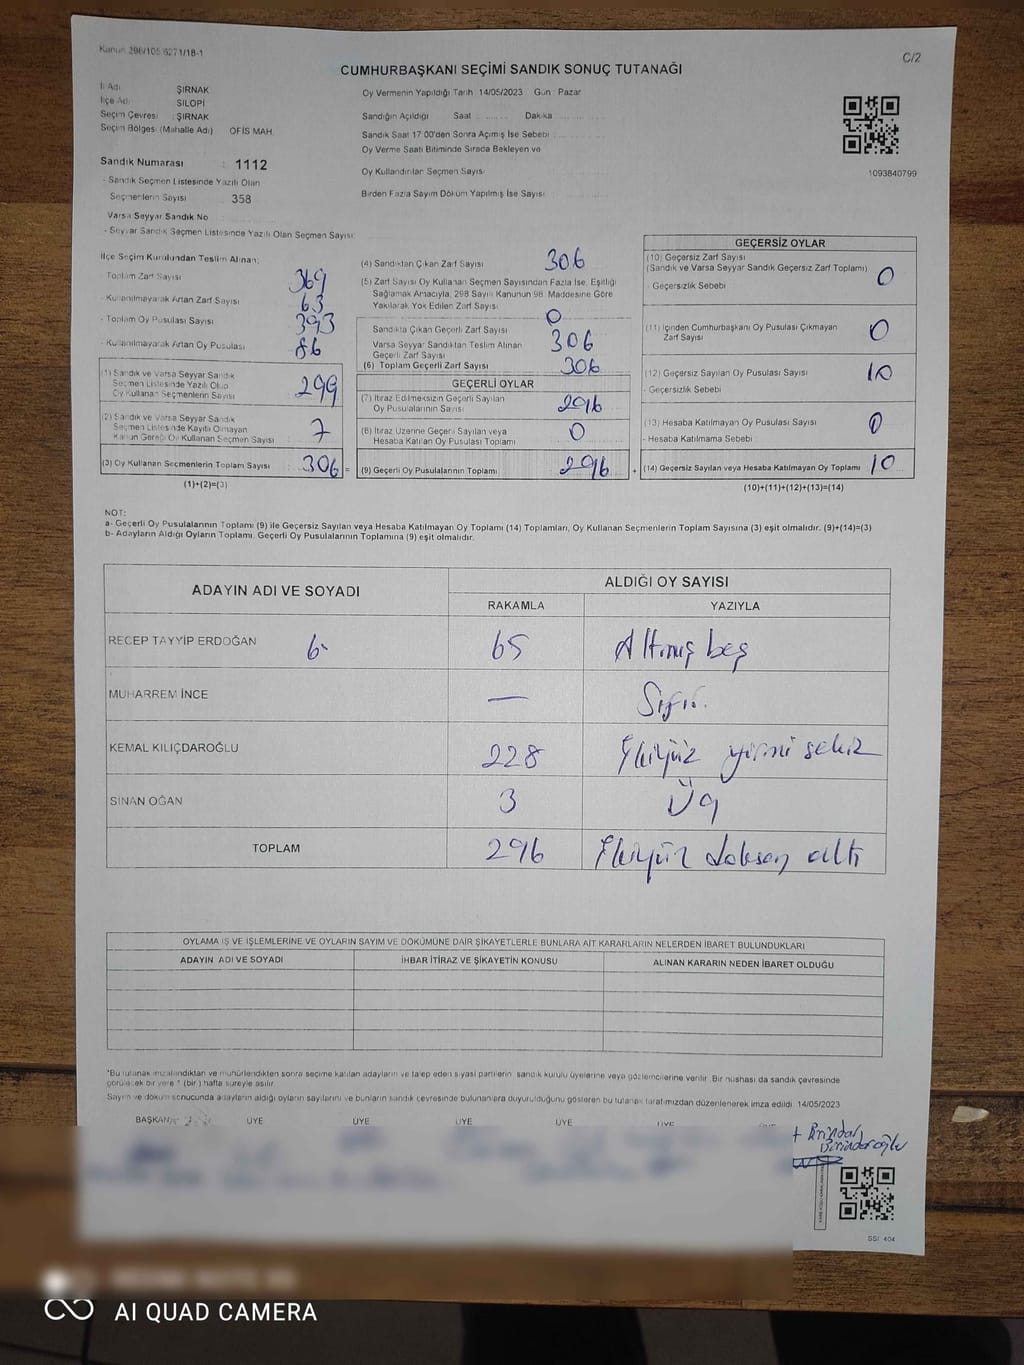 Kanun 298/105 6271/18-1
C/2
CUMHURBAŞKANI SEÇİMİ SANDIK SONUÇ TUTANAĞI
İl Adı : ŞIRNAK
İlçe Adı : SİLOPİ
Seçim Çevresi : ŞIRNAK
Seçim Bölgesi (Mahalle Adı) OFİS MAH.
Sandık Numarası : 1112
- Sandık Seçmen Listesinde Yazılı Olan
Seçmenlerin Sayısı : 358
Varsa Seyyar Sandık No
- Seyyar Sandık Seçmen Listesinde Yazılı Olan Seçmen Sayısı:
Oy Vermenin Yapıldığı Tarih : 14/05/2023 Gün : Pazar
Sandığın Açıldığı Saat : Dakika
Sandık Saat 17 00'den Sonra Açılmış İse Sebebi :
Oy Verme Saati Bitiminde Sırada Bekleyen ve
Oy Kullandırılan Seçmen Sayısı
Birden Fazla Sayım Döküm Yapılmış İse Sayısı:
1093840799
İlçe Seçim Kurulundan Teslim Alınan:
- Toplam Zarf Sayısı 369
- Kullanılmayarak Artan Zarf Sayısı 63
- Toplam Oy Pusulası Sayısı 393
- Kullanılmayarak Artan Oy Pusulası 86
(1) Sandık ve Varsa Seyyar Sandık
Seçmen Listesinde Yazılı Olup
Oy Kullanan Seçmenlerin Sayısı 299
(2) Sandık ve Varsa Seyyar Sandık
Seçmen Listesinde Kayıtlı Olmayan
Kanun Gereği Oy Kullanan Seçmen Sayısı : 7
(3) Oy Kullanan Seçmenlerin Toplam Sayısı : 306 =
(1)+(2)=(3)
(4) Sandıktan Çıkan Zarf Sayısı 306
(5) Zarf Sayısı Oy Kullanan Seçmen Sayısından Fazla İse, Eşitliği
Sağlamak Amacıyla, 298 Sayılı Kanunun 98. Maddesine Göre
Yakılarak Yok Edilen Zarf Sayısı 0
Sandıkta Çıkan Geçerli Zarf Sayısı 306
Varsa Seyyar Sandıktan Teslim Alınan
Geçerli Zarf Sayısı
(6) Toplam Geçerli Zarf Sayısı 306
GEÇERLİ OYLAR
(7) İtiraz Edilmeksizin Geçerli Sayılan
Oy Pusulalarının Sayısı : 296
(8) İtiraz Üzerine Geçerli Sayılan veya
Hesaba Katılan Oy Pusulası Toplamı : 0
(9) Geçerli Oy Pusulalarının Toplamı : 296 +
GEÇERSİZ OYLAR
(10) Geçersiz Zarf Sayısı
(Sandık ve Varsa Seyyar Sandık Geçersiz Zarf Toplamı) 0
- Geçersizlik Sebebi
(11) İçinden Cumhurbaşkanı Oy Pusulası Çıkmayan
Zarf Sayısı 0
(12) Geçersiz Sayılan Oy Pusulası Sayısı 10
- Geçersizlik Sebebi
(13) Hesaba Katılmayan Oy Pusulası Sayısı 0
- Hesaba Katılmama Sebebi
(14) Geçersiz Sayılan veya Hesaba Katılmayan Oy Toplamı 10
(10)+(11)+(12)+(13)=(14)
NOT:
a- Geçerli Oy Pusulalarının Toplamı (9) ile Geçersiz Sayılan veya Hesaba Katılmayan Oy Toplamı (14) Toplamları, Oy Kullanan Seçmenlerin Toplam Sayısına (3) eşit olmalıdır. (9)+(14)=(3)
b- Adayların Aldığı Oyların Toplamı, Geçerli Oy Pusulalarının Toplamına (9) eşit olmalıdır.
ADAYIN ADI VE SOYADI
ALDIĞI OY SAYISI
RAKAMLA YAZIYLA
RECEP TAYYİP ERDOĞAN 6 65 Altmış beş
MUHARREM İNCE — Sıfır.
KEMAL KILIÇDAROĞLU 228 İkiyüz yirmi sekiz
SİNAN OĞAN 3 Üç
TOPLAM 296 İkiyüz doksan altı
OYLAMA İŞ VE İŞLEMLERİNE VE OYLARIN SAYIM VE DÖKÜMÜNE DAİR ŞİKAYETLERLE BUNLARA AİT KARARLARIN NELERDEN İBARET BULUNDUKLARI
ADAYIN ADI VE SOYADI İHBAR İTİRAZ VE ŞİKAYETİN KONUSU ALINAN KARARIN NEDEN İBARET OLDUĞU
*Bu tutanak imzalandıktan ve mühürlendikten sonra seçime katılan adayların ve talep eden siyasi partilerin sandık kurulu üyelerine veya gözlemcilerine verilir. Bir nüshası da sandık çevresinde
görülecek bir yere 1 (bir) hafta süreyle asılır.
Sayım ve döküm sonucunda adayların aldığı oyların sayılarını ve bunların sandık çevresinde bulunanlara duyurulduğunu gösteren bu tutanak tarafımızdan düzenlenerek imza edildi. 14/05/2023
BAŞKAN ÜYE ÜYE ÜYE ÜYE ÜYE
SSI: 404
AI QUAD CAMERA